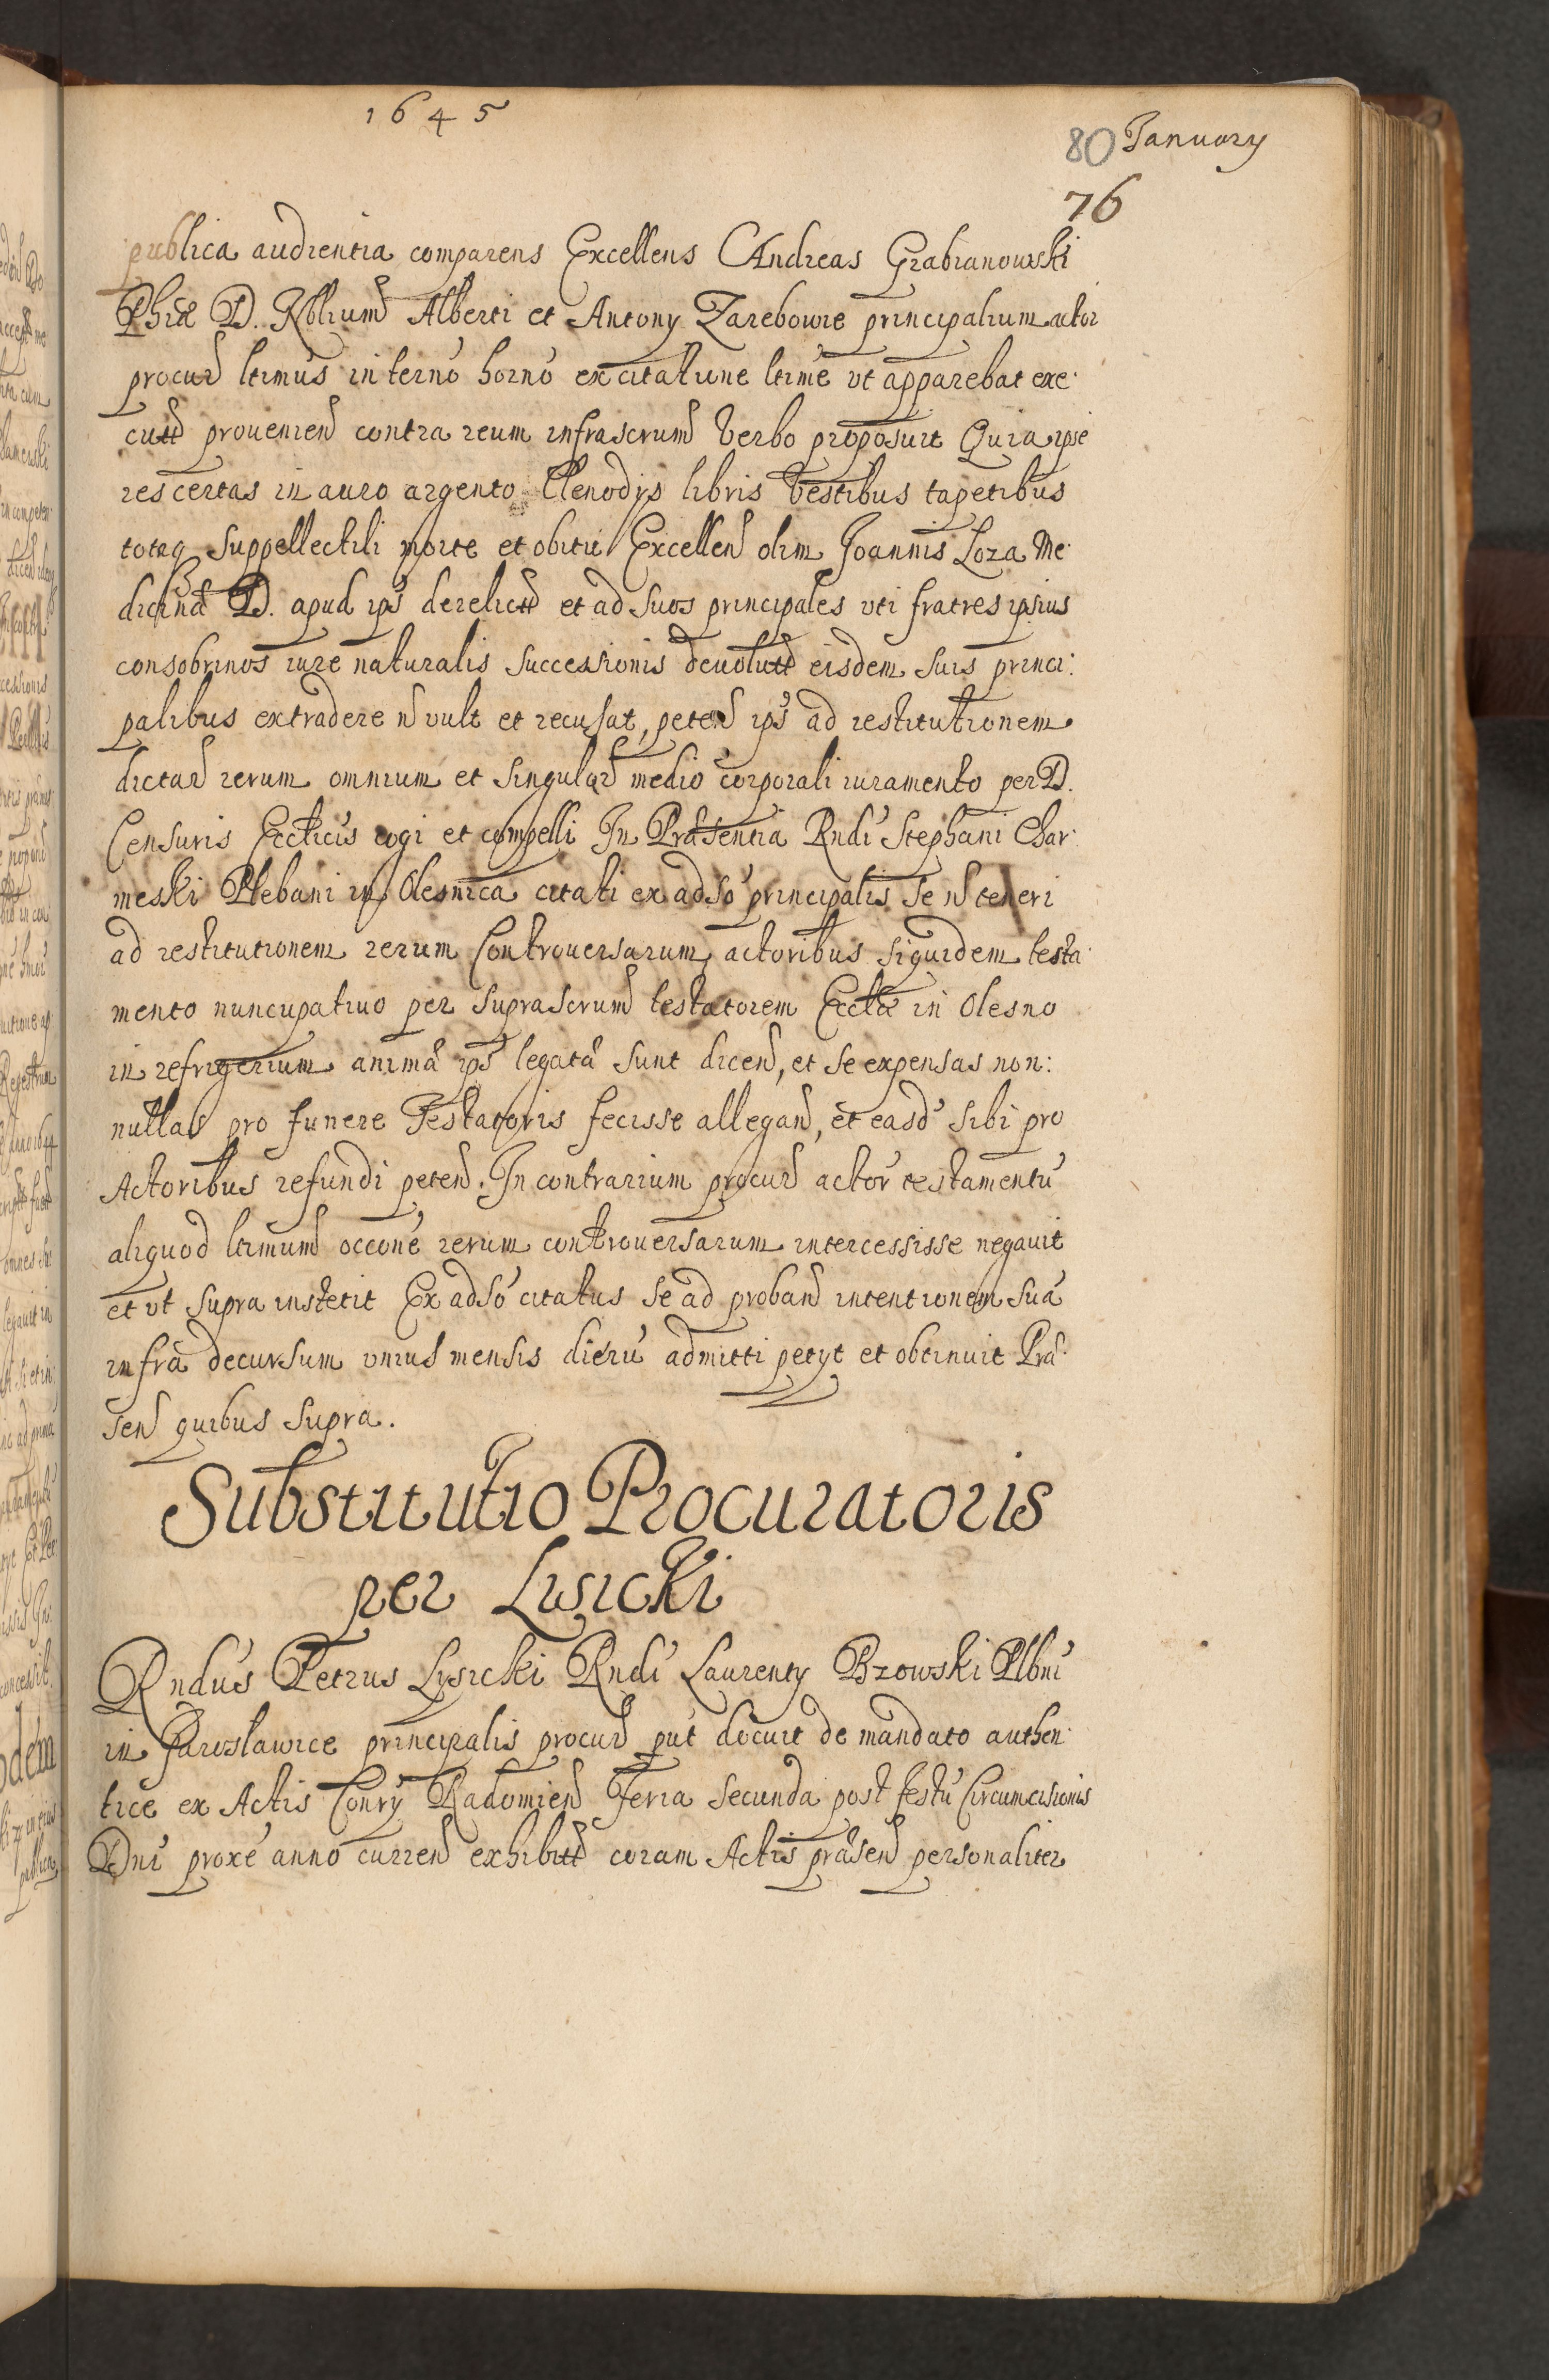 1645
80 January
76
publica audientia comparens Excellens Andreas Grabianowski
Phiæ D. Nblium Alberti et Antony Zarebowie principalium actor
procur ltimus in terno horno ex citatione ltime vt apparebat exe
cutt prouenien contra reum infrascrum verbo proposuit Quia ipse
res certas in auro argento Clenodys libris vestibus tapetibus
totaq suppellectili morte et obitu Excellen olim Joannis Loza Me
dicinæ D. apud ips derelictt et ad suos principales vti fratres ipsius
consobrinos iure naturalis successionis deuolutt eisdem suis princi:
palibus extradere n vult et recusat, peten ips ad restitutionem
dictar rerum omnium et singular medio corporali iuramento per D.
Censuris Ecclicis cogi et compelli In Præsentia Rndi Stephani Char
meski Plebani in Olesnica citati ex adso principalis se n teneri
ad restitutionem rerum Controuersarum actoribus siquidem testa
mento nuncupatiuo per suprascrum testatorem Ecclæ in Olesno
in refrigerium animæ ips legatæ sunt dicen, et se expensas non:
nullas pro funere Testatoris fecisse allegan, et easd sibi pro
Actoribus refundi peten. In contrarium procur actor testamentu
aliquod ltimum occone rerum controuersarum intercessisse negauit
et vt supra institit Ex adso citatus se ad proban intentionem sua
infra decursum vnius mensis dieru admitti petyt et obtinuit Præ
sen quibus supra.
Substitutio Procuratoris
per Lisicki
Rndus Petrus Lysicki Rndi Laurenty Brzowski Plbni
in Jaroslawice principalis procur put docuit de mandato authen
tice ex Actis Conry Radomien Feria secunda post festu Circumcisionis
Dni proxe anno curren exhibitt coram Actis præsen personaliter